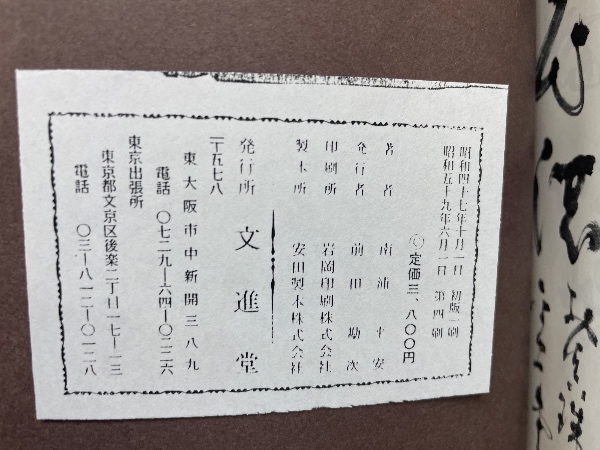 昭和四十七年十月一日 初版一刷
昭和五十九年六月一日 第四刷
◎定価三、八〇〇円
著者 南浦 平安
発行者 前田 勘次
印刷所 岩岡印刷株式会社
製本所 安田製本株式会社
発行所 文進堂
〒五七八
東大阪市中新開三八九
電話 〇七二九―六四―〇二二六
東京出張所
東京都文京区後楽二丁目一七―一三
電話 〇三―八一二―〇一二八